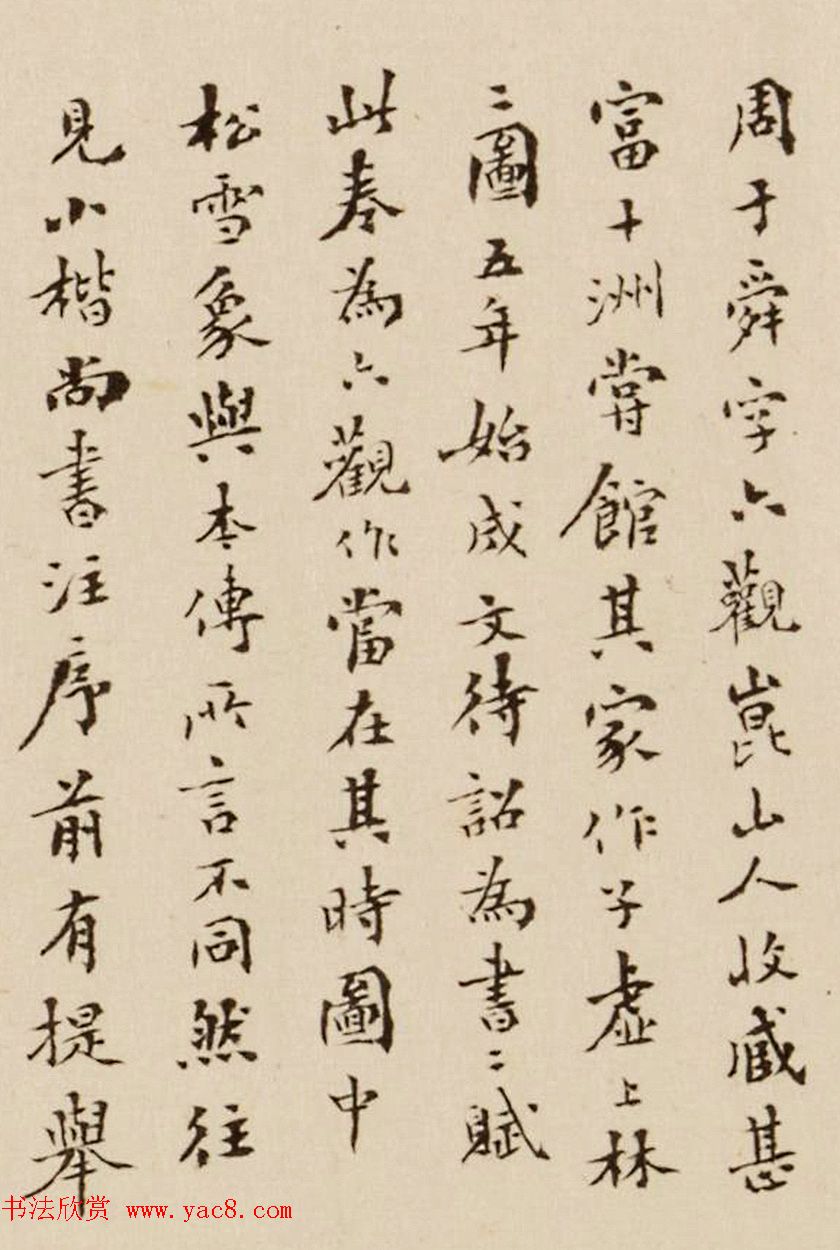 周于舜字六觀崑山人收藏甚
富十洲嘗館其家作子虛上林
二圖五年始成文待詔為書二賦
此奏為六觀作當在其時圖中
松雪象與本傳所言不同然往
見小楷尚書注序前有提舉
书法欣赏 www.yac8.com